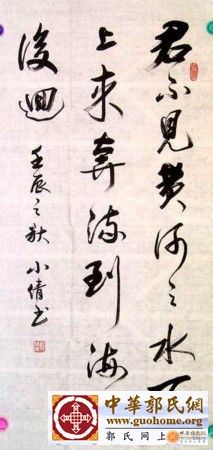 君不見黄河之水
上來奔流到海
復迴
壬辰之秋 小倩书
中華郭氏網
www.guohome.com
郭氏网上